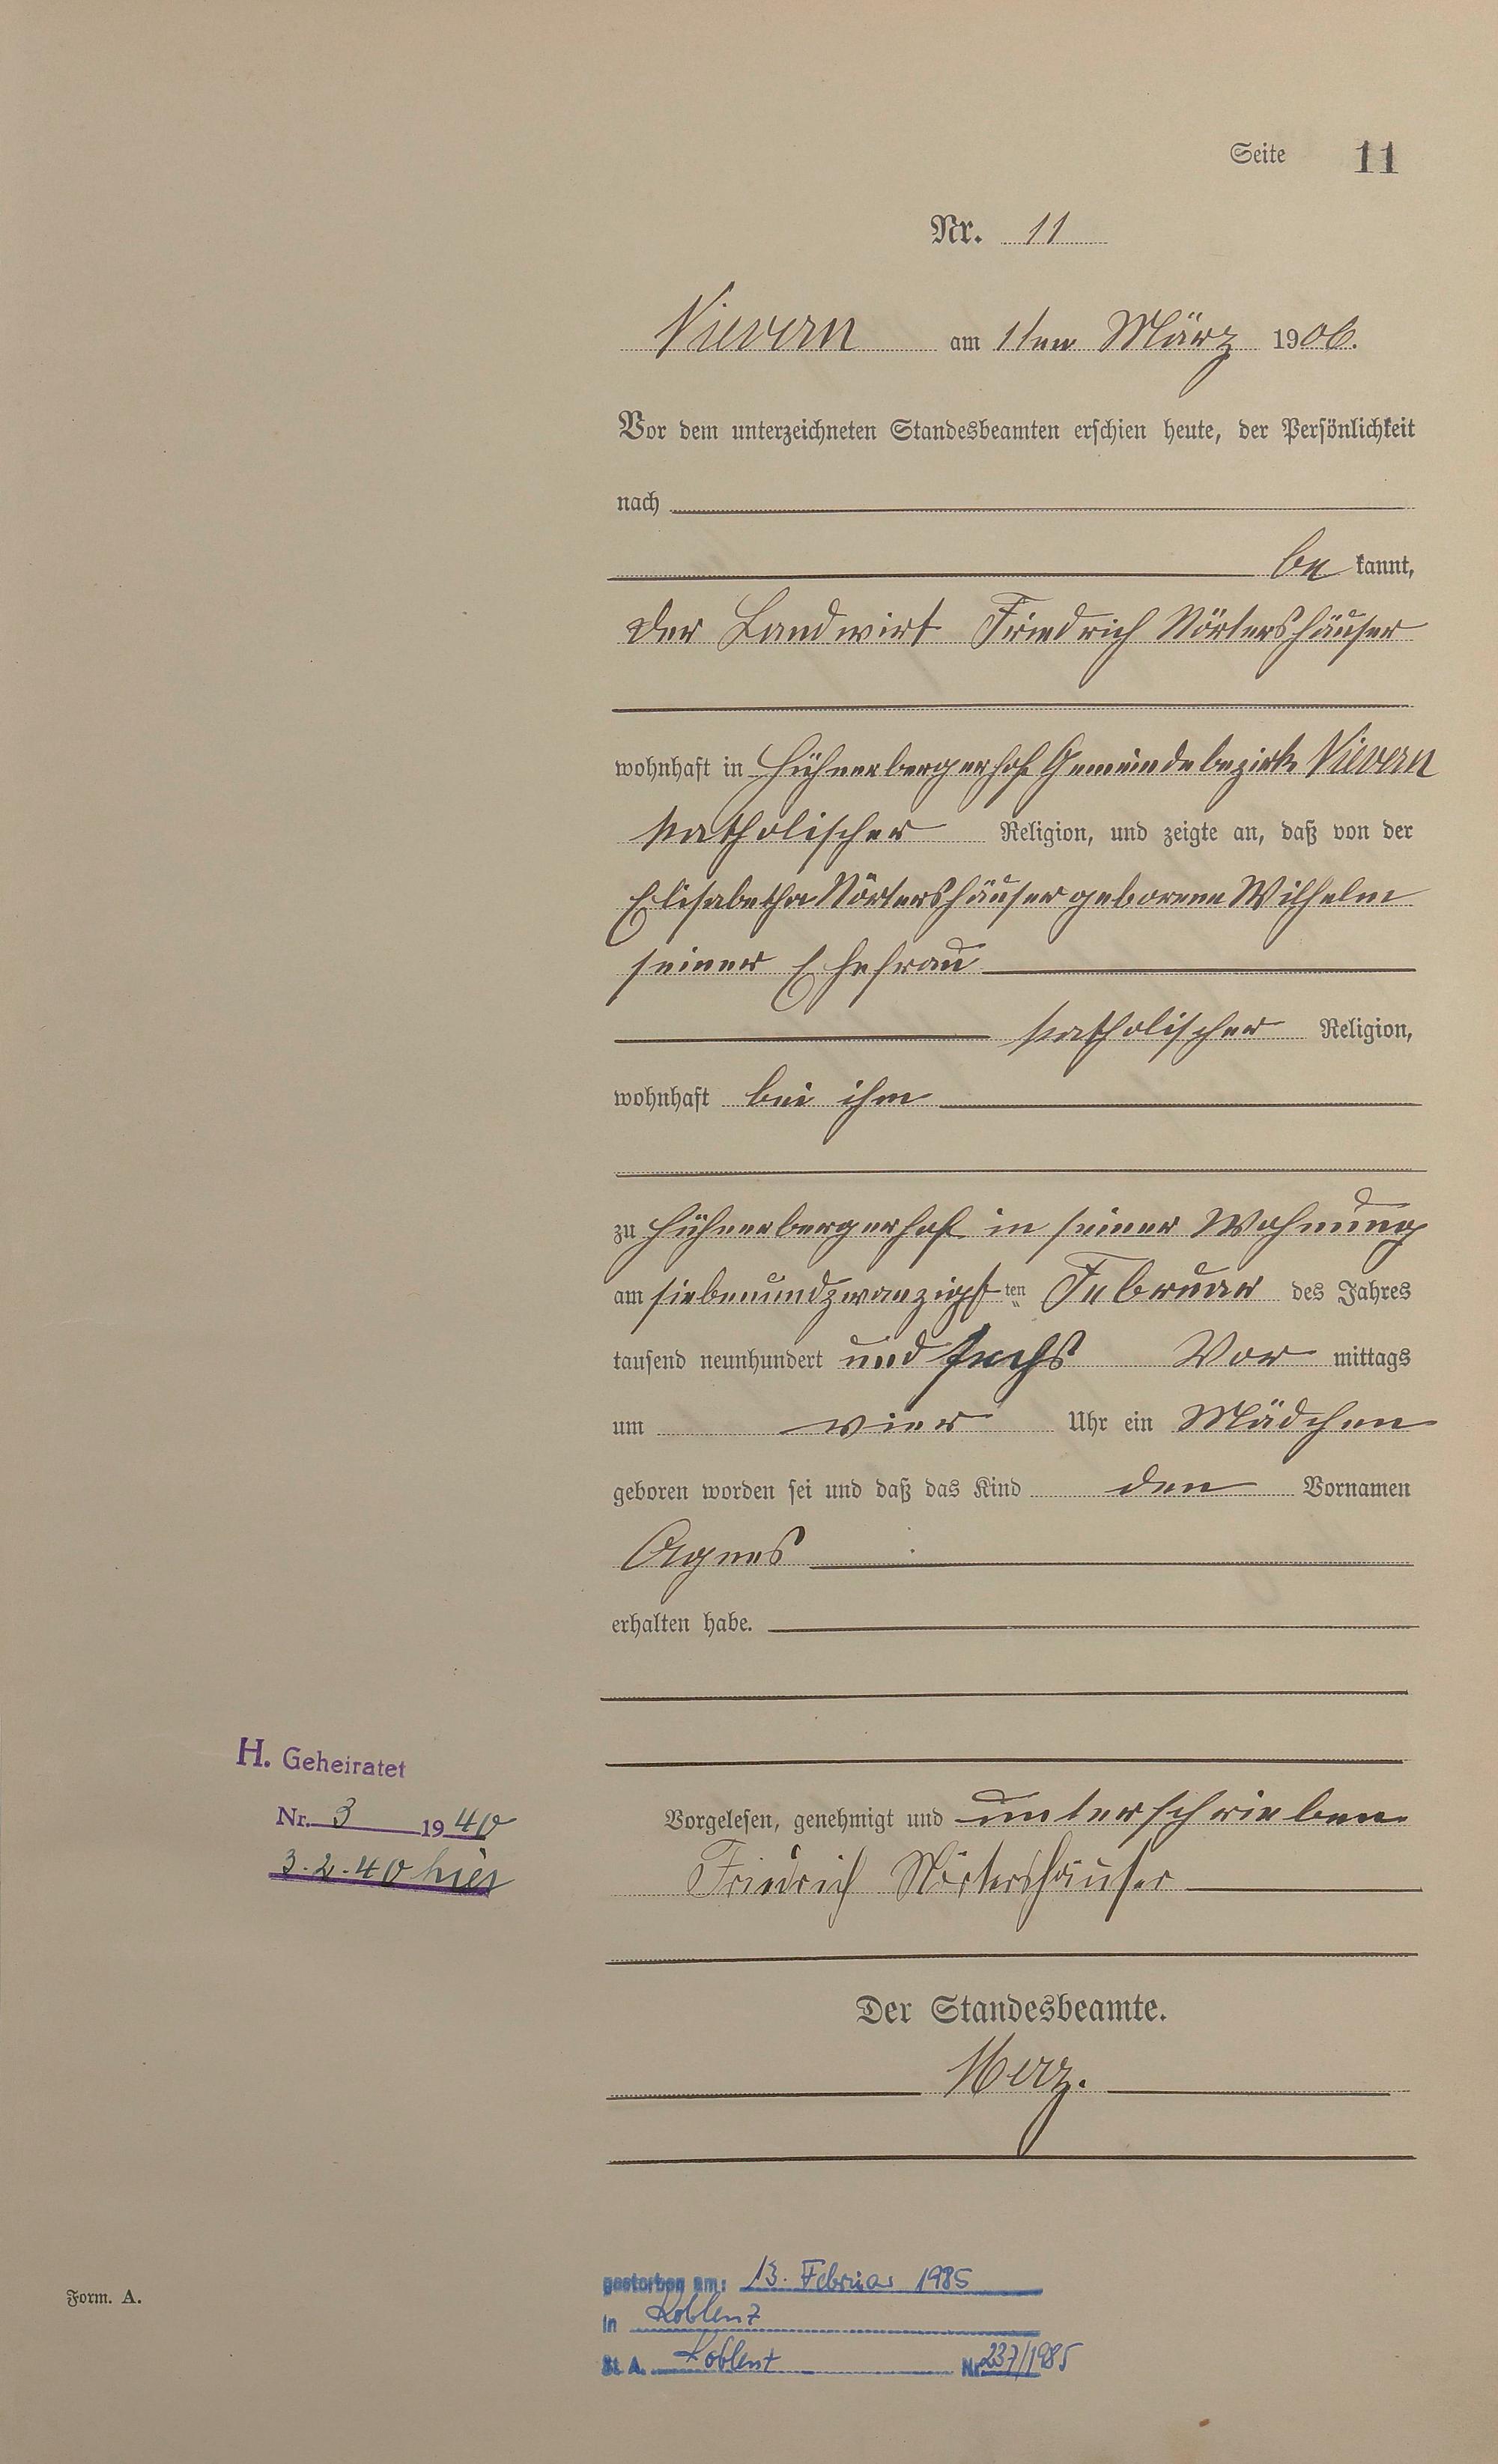 Seite 11
Nr. 11
Nievern am 1ten März 1906.
Vor dem unterzeichneten Standesbeamten erschien heute, der Persönlichkeit
nach
be kannt,
der Landwirt Friedrich Nörtershäuser
wohnhaft in Hühnerbergerhof Gemeindebezirk Nievern
katholischer Religion, und zeigte an, daß von der
Elisabetha Nörtershäuser geborene Wilhelm
seiner Ehefrau
katholischer Religion,
wohnhaft bei ihm
zu Hühnerbergerhof in seiner Wohnung
am siebenundzwanzigsten Februar des Jahres
tausend neunhundert und sechs Vor mittags
um vier Uhr ein Mädchen
geboren worden sei und daß das Kind den Vornamen
Agnes
erhalten habe.
H. Geheiratet
Nr. 3 1940
3.2.40 hier
Vorgelesen, genehmigt und unterschrieben
Friedrich Nörtershäuser
Der Standesbeamte.
Merz.
Form. A.
gestorben am: 13. Februar 1985
in Koblenz
St. A. Koblenz Nr. 237/1985